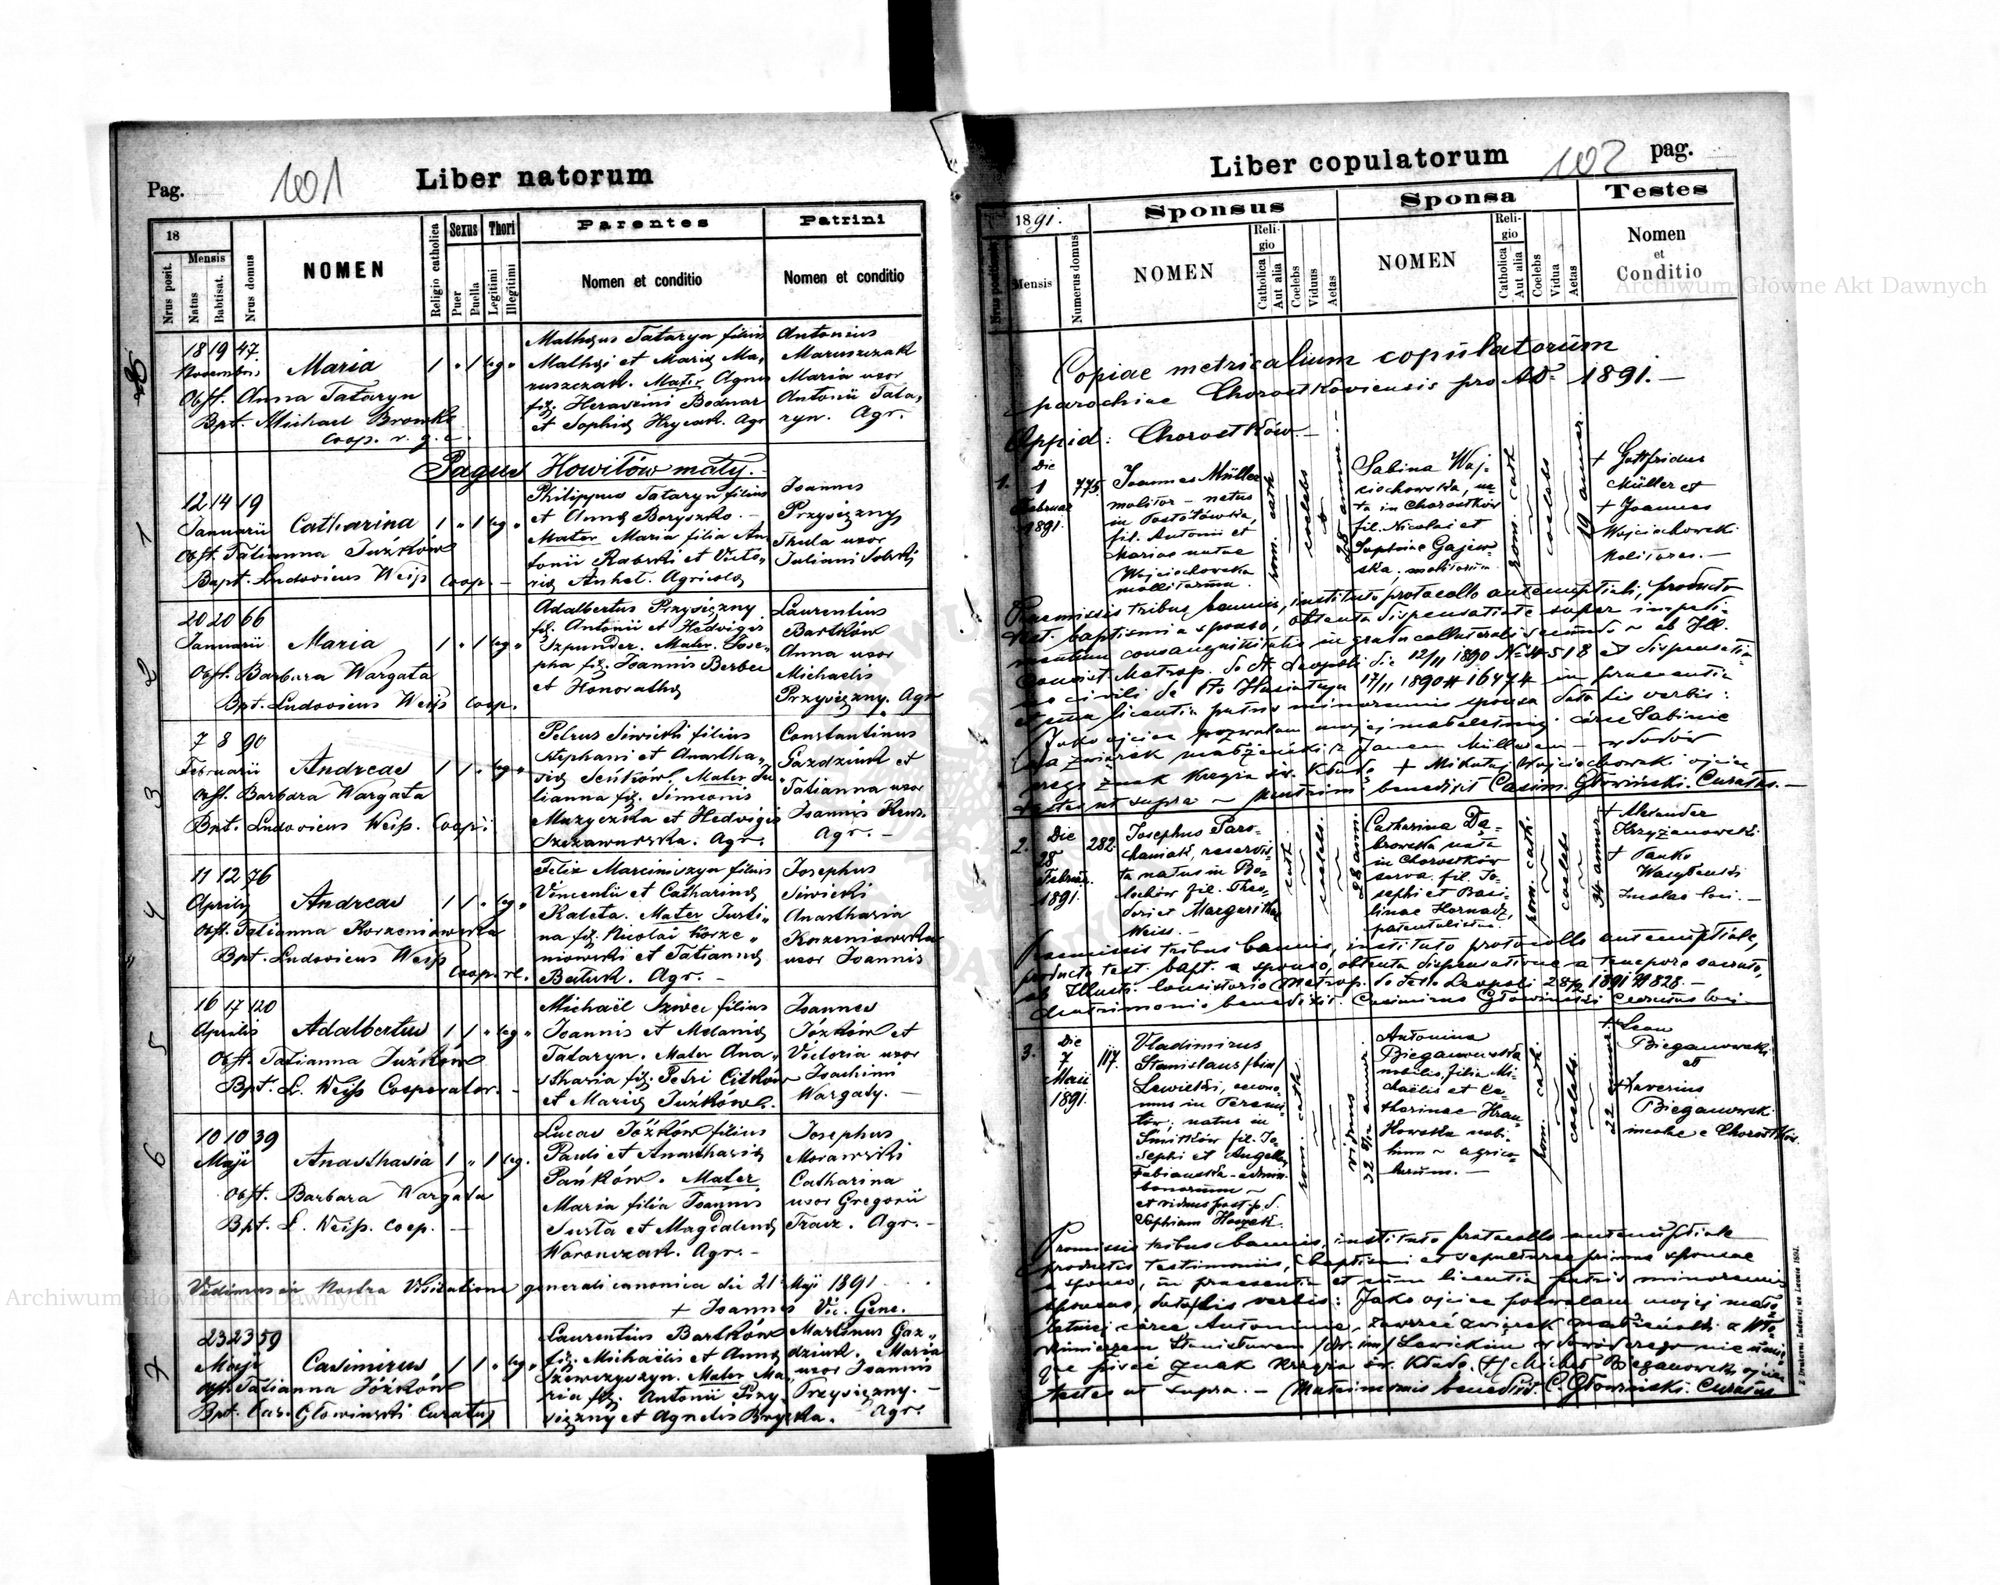 Pag. 101
Liber natorum
18
Mensis
Nrus posit.
Natus
Babtisat.
Nrus domus
NOMEN
Religio catholica
Sexus
Puer
Puella
Thori
Legitimi
Illegitimi
Parentes
Nomen et conditio
Patrini
Nomen et conditio
18 19 47.
Novembris
Maria
1 " 1 leg "
Obst. Anna Tataryn
Bpt. Michael
Coop. r. g. c.
Matheus Tataryn filius
Mathei et Maria Ma-
ruszczak. Mater Agnes
fil. Herasimi Bodnar
et Sophia Hrycak. Agr
Antonius
Maruszczak
Maria uxor
Antonii Tata-
ryn. Agr.
Pagus Howiłów mały.
1
12 14 19
Januarii
Catharina
1 " 1 leg "
Obst. Tatianna Juźków
Bapt. Ludovicus Weiss Coop. -
Philippus Tataryn filius
et Anna Boryszko. -
Mater Maria filia An-
tonii et Victo-
ria Agricola
Joannes
Przysiężny
Thecla uxor
Juliani
2
20 20 66
Januarii
Maria
1 " 1 leg "
Obst. Barbara Wargata
Bpt. Ludovicus Weiss Coop.
Adalbertus Przysiężny
fil. Antonii et Hedvigis
Szpunder. Mater Jose-
pha fil. Joannis Berbec
et Honoratha
Laurentius
Bartków
Anna uxor
Michaelis
Przysiężny. Agr
3
7 8 90
Februarii
Andreas
1 1 " leg "
Obst. Barbara Wargata
Bpt. Ludovicus Weiss. Coop:
Petrus Siwicki filius
Stephani et Anastha-
sia Mater Ju-
lianna fil. Simeonis
Muzyczka et Hedvigis
Agr.
Constantinus
Gazdziuk et
Tatianna uxor
Joannis
Agr. -
4
11 12 76
Aprilis
Andreas
1 1 " leg "
Obst. Tatianna Korzeniowska
Bpt. Ludovicus Weiss
Coop.
Felix Marciniszyn filius
Vincentii et Catharina
Kaleta. Mater Justi-
na fil. Nicolai Korze-
niowski et Tatianna
Baturk. Agr. -
Josephus
Siwicki
Anasthasia
Korzeniowska
uxor Joannis
5
16 17 120
Aprilis
Adalbertus
1 1 " leg "
Obst. Tatianna Juźków
Bpt. L. Weiss Cooperator. -
Michaël Szwec filius
Joannis et Melania
Tataryn. Mater Ana-
sthasia fil. Petri Citków
et Maria Juźków.
Joannes
Józków et
Victoria uxor
Joachimi
Wargaty. -
6
10 10 39
Maji
Anasthasia
1 " 1 leg.
Obst. Barbara Wargata
Bpt. L. Weiss. Coop. -
Lucas Józków filius
Pauli et Anasthasia
Pańków. Mater
Maria filia Joannis
Justa et Magdalena
Woronczak. Agr. -
Josephus
Morawski
Catharina
uxor Gregorii
Tracz. Agr. -
Vidimus in Nostra Visitatione generali canonica die 21 Maji 1891
+ Joannes Vic. Gene.
7
23 23 59
Maji
Casimirus
1 1 " leg "
Obst. Tatianna Józków
Bpt. Cas. Głowiński Curatus
Laurentius Bartków
fil. Michaëlis et Anna
Szewczyszyn. Mater Ma-
ria fil. Antonii Przy-
siężny et Agnetis Bryczka.
Martinus Gaz-
dziuk. Maria
uxor Joannis
Przysiężny. -
Agr.
Liber copulatorum
102 pag.
1891.
Nrus positionis
Mensis
Numerus domus
Sponsus
NOMEN
Religio
Catholica
Aut alia
Coelebs
Viduus
Aetas
Sponsa
NOMEN
Religio
Catholica
Aut alia
Coelebs
Vidua
Aetas
Testes
Nomen
et
Conditio
Copiae metricalium copulatorum
parochiae Chorostkoviensis pro AD. 1891. -
Oppid: Chorostków. -
1.
Die
1
Februar
1891.
775.
Joannes Müller
molitor - natus
in Postołówka,
fil. Antonii et
Mariae natae
Wojciechowska
rom. cath
coelebs
28 annor.
Sabina Woj-
ciechowska, na-
ta in Chorostków
fil. Nicolai et
Sophiae Gajew-
ska, molitorum
rom. cath
coelebs
19 annor.
+ Gottfridus
Müller et
+ Joannes
Wojciechowski
Molitores. -
Praemissis tribus bannis, instituto protocollo antenuptiali, producto
test. baptismi a sponso, obtenta dispensatione super impedi-
mentum consanguinitatis in gradu collaterali secundo ab Ill.
Consist. Metrop. Leopoli die 12/11 1890 N 4518 et dispensatio-
ne civili de Husiatyn 17/11 1890 # 16474 in praesentia
et cum licentia patris minorennis sponsae data his verbis:
Jako ojciec pozwalam mojej małoletniej córce Sabinie
na związek małżeński z Janem Müllerem - w dowód
czego znak krzyża św. kładę + Mikołaj Wojciechowski ojciec
testes ut supra - benedixit Casim. Głowiński. Curatus. -
2.
Die
28
Februar.
1891.
282
Josephus Paro-
natus in
fil. Theo-
dori et Margaritha
Weiss. -
rom. cath.
coelebs.
28 ann.
Catharina Dą-
browska nata
in Chorostków
serva. fil. Jo-
sephi et Basi-
linae
rom. cath.
coelebs
34 annor.
+ Alexander
Krzyżanowski
+ Panko
Wasylewski
Praemissis tribus bannis, instituto protocollo antenuptiali,
producto test. bapt. a sponso, obtenta dispensatione a tempore sacrato,
ab Illustr. Consistorio Metrop. Leopoli 28/2 1891 N 828. -
Matrimonio benedixit. Casimirus Głowiński Curatus loci
3.
Die
7
Maii
1891.
117.
Vladimirus
Stanislaus
Lewicki, oecono-
mus in
natus in
fil. Jo-
sephi et Angela
Fabianska
et viduus post p. d.
Sophiam
rom. cath
viduus
32 annor
Antonina
Bieganowska
nobilis, filia Mi-
chaëlis et Ca-
tharinae Hran-
kowska nobi-
lium - agrico-
larum. -
rom. cath.
coelebs.
22 annor.
+ Leon
Bieganowski
et
+ Xaverius
Bieganowski
incolae e Chorostków.
Praemissis tribus bannis, instituto protocollo antenuptiali
productis testimoniis, baptismi et sepulturae primae sponsae
a sponso, in praesentia et cum licentia patris minorennis
sponsae, data his verbis: Jako ojciec pozwalam mojej mało-
letniej córce Antoninie, zawrzeć związek małżeński z Wło-
dzimierzem Stanisławem Lewickim w dowód czego nie umie-
jąc pisać znak krzyża św. kładę. (+) Michał Bieganowski ojciec
testes ut supra. - Matrimonio benedixit. C. Głowiński. Curatus
Z Drukarni Ludowej we Lwowie 1892.
Archiwum Główne Akt Dawnych
Archiwum Główne Akt Dawnych